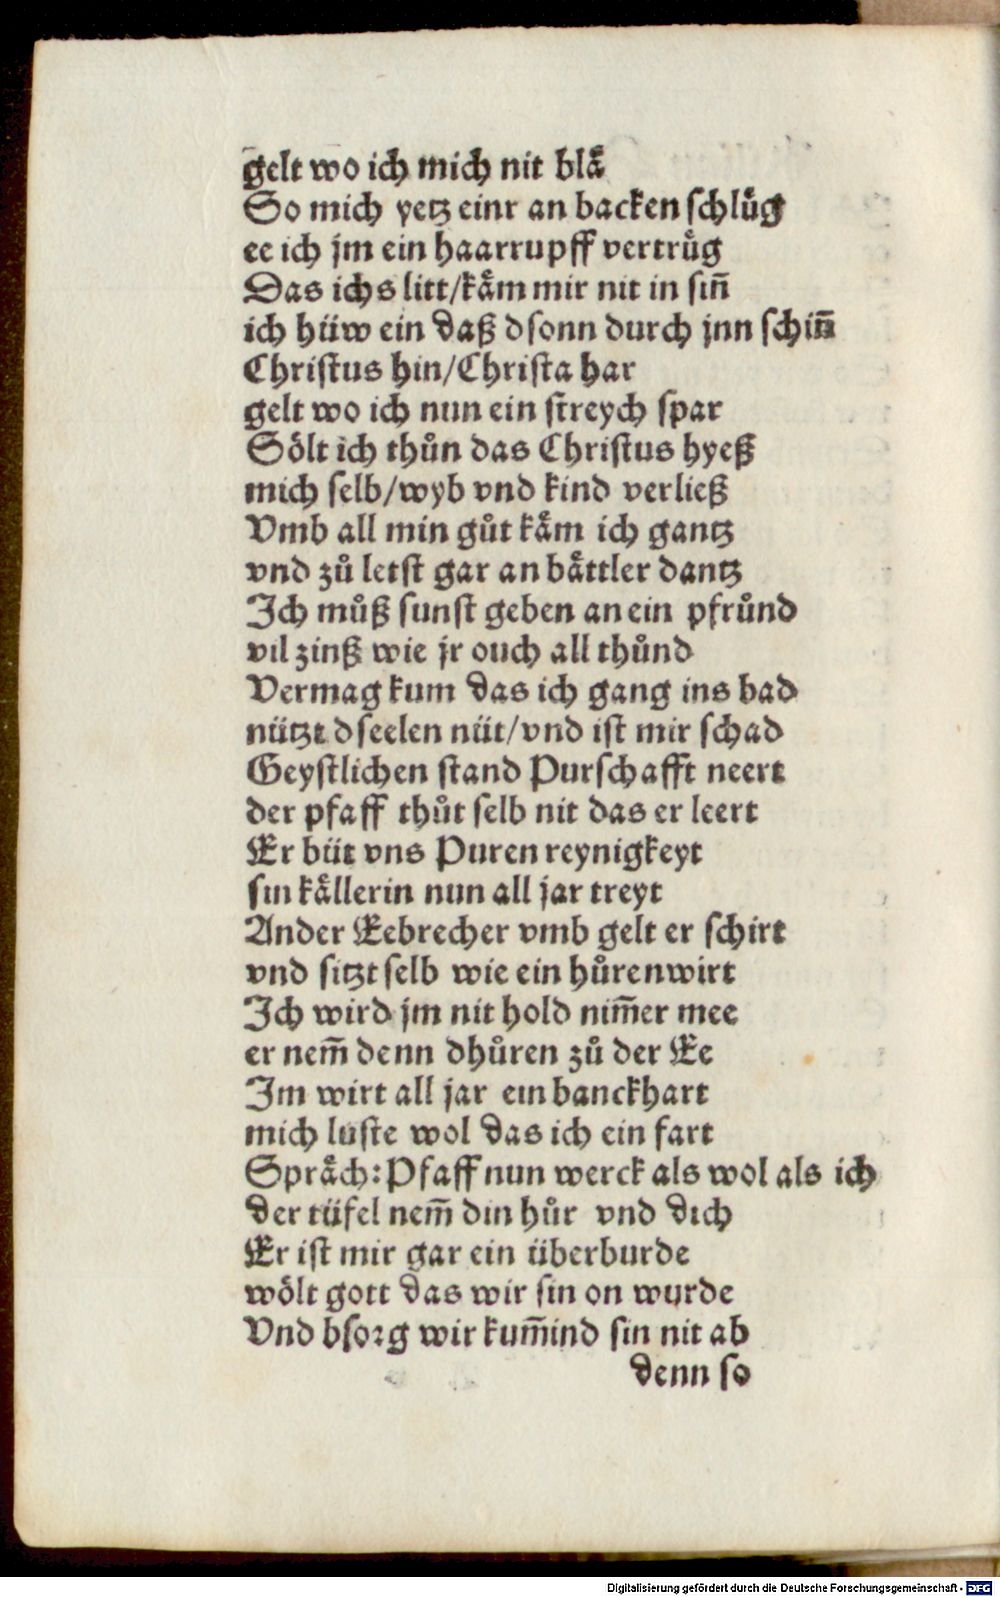 gelt wo ich mich nit blaͤ
So mich yetz einr an backen schluͤg
ee ich jm ein haarrupff vertruͤg
Das ichs litt/kaͤm mir nit in sin̄
ich hüw ein daß dsonn durch jnn schin̄
Christus hin/Christa har
gelt wo ich nun ein streych spar
Soͤlt ich thuͦn das Christus hyeß
mich selb/wyb vnd kind verließ
Vmb all min guͦt kaͤm ich gantz
vnd zuͦ letst gar an baͤttler dantz
Ich muͦß sunst geben an ein pfruͦnd
vil zinß wie jr ouch all thuͦnd
Vermag kum das ich gang ins bad
nützt dseelen nüt/vnd ist mir schad
Geystlichen stand Purschafft neert
der pfaff thuͦt selb nit das er leert
Er büt vns Puren reynigkeyt
sin kaͤllerin nun all jar treyt
Ander Eebrecher vmb gelt er schirt
vnd sitzt selb wie ein huͦrenwirt
Ich wird jm nit hold nim̄er mee
er nem̄ denn dhuͦren zuͦ der Ee
Im wirt all jar ein banckhart
mich luste wol das ich ein fart
Spraͤch: Pfaff nun werck als wol als ich
der tüfel nem̄ din huͦr vnd dich
Er ist mir gar ein überburde
woͤlt gott das wir sin on wurde
Vnd bsorg wir kum̄ind sin nit ab
denn so
Digitalisierung gefördert durch die Deutsche Forschungsgemeinschaft - DFG